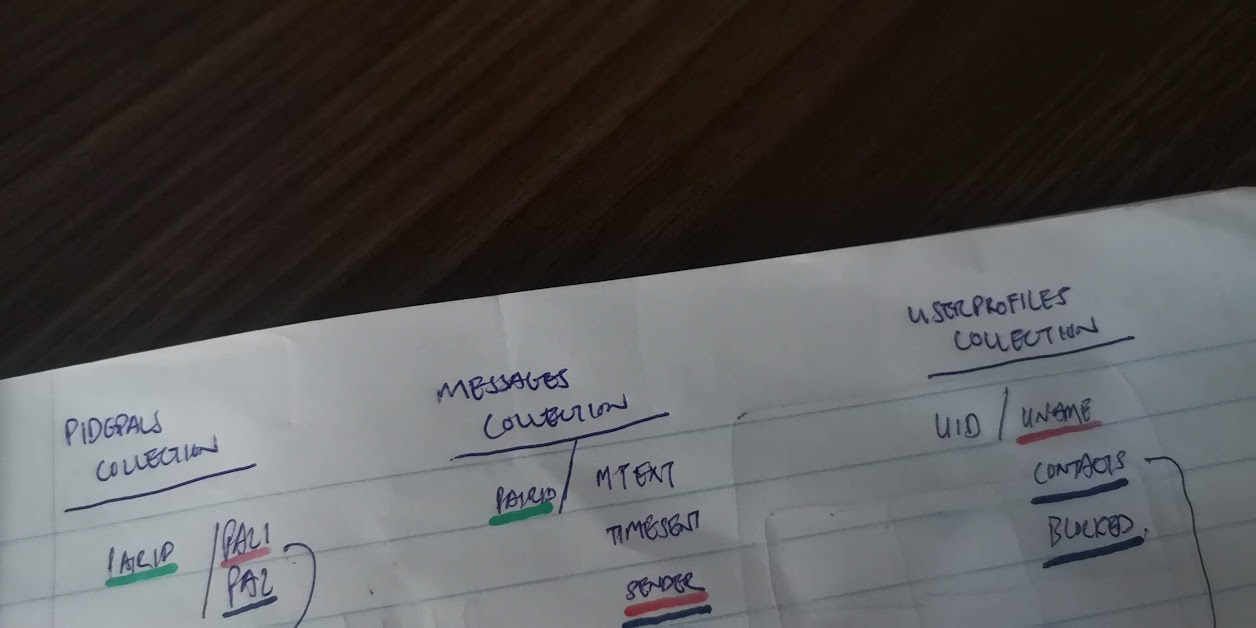 PIDEPALS
COLLECTION
PAIRID / PAL1
PAL2
MESSAGES
COLLECTION
PAIRID / MTEXT
TIMESENT
SENDER
USERPROFILES
COLLECTION
UID / UNAME
CONTACTS
BLOCKED